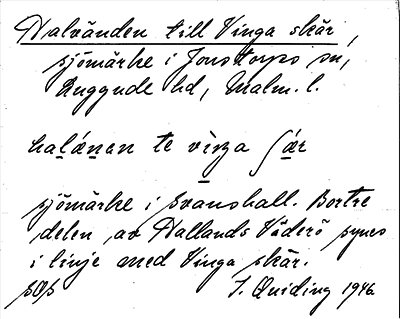 Halvänden till Vinga skär,
sjömärke i Jonstorps sn,
Luggude hd, Malm. l.
halǽnan te vinga ʃǽr
sjömärke i Svanshall. Bortre
delen av Hallands Väderö synes
i linje med Vinga skär.
sOs I. Quiding 1946